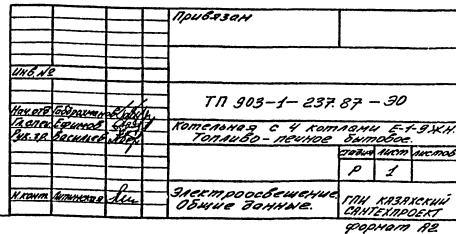 Привязан
Инв.№
ТП 903-1-237.87 -ЭО
Нач.отд
Гл.спец. Ефимов
Рук.гр. Васильев
Котельная с 4 котлами Е-1-9Ж.Н.
Топливо-печное бытовое.
стадия лист листов
Р 1
Н.конт. Литинская
Электроосвещение.
Общие данные.
ГПИ КАЗАХСКИЙ
САНТЕХПРОЕКТ
формат А2